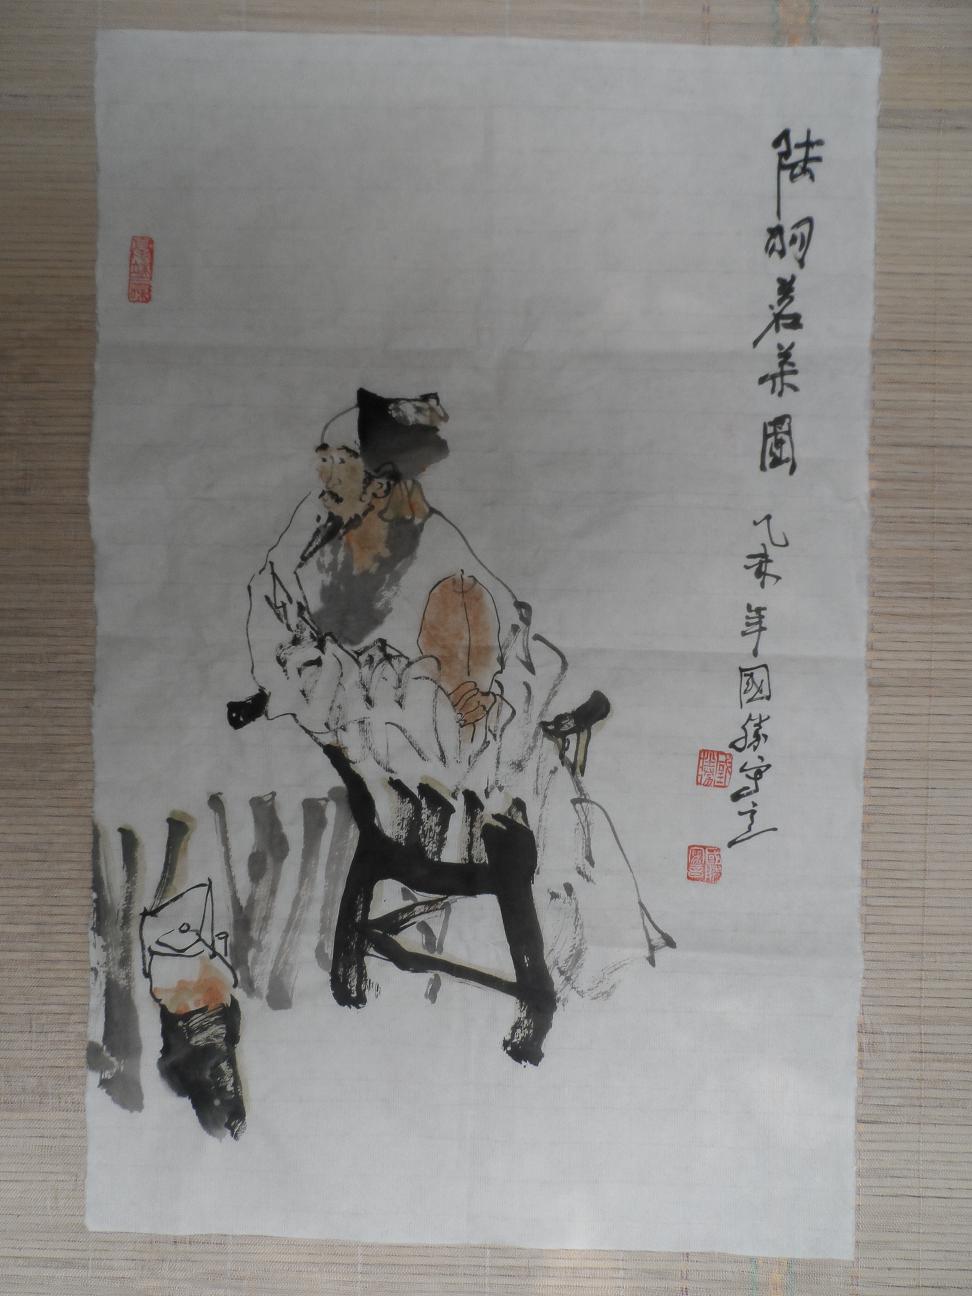 陆羽茗茶圖
乙未年國勝写之